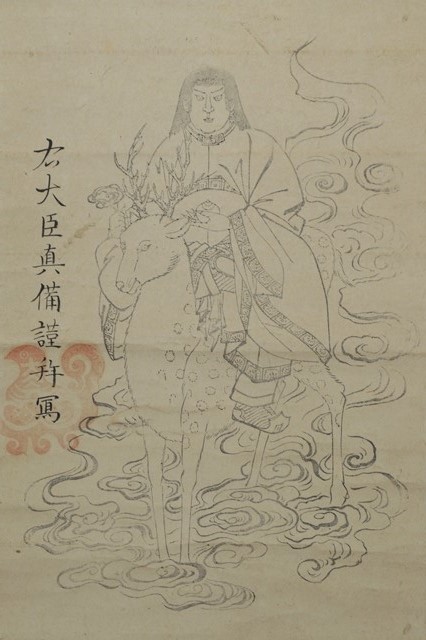 右大臣真備謹拜冩